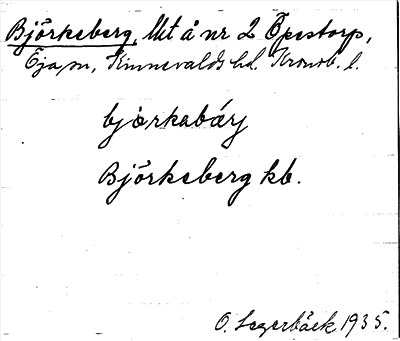 Björkeberg, Ukt å nr 2 Öpestorp,
Öja sn, Kinnevalds hd. Kronob. l.
bjòrkabárj
Björkeberg kb.
O. Lagerbäck 1935.